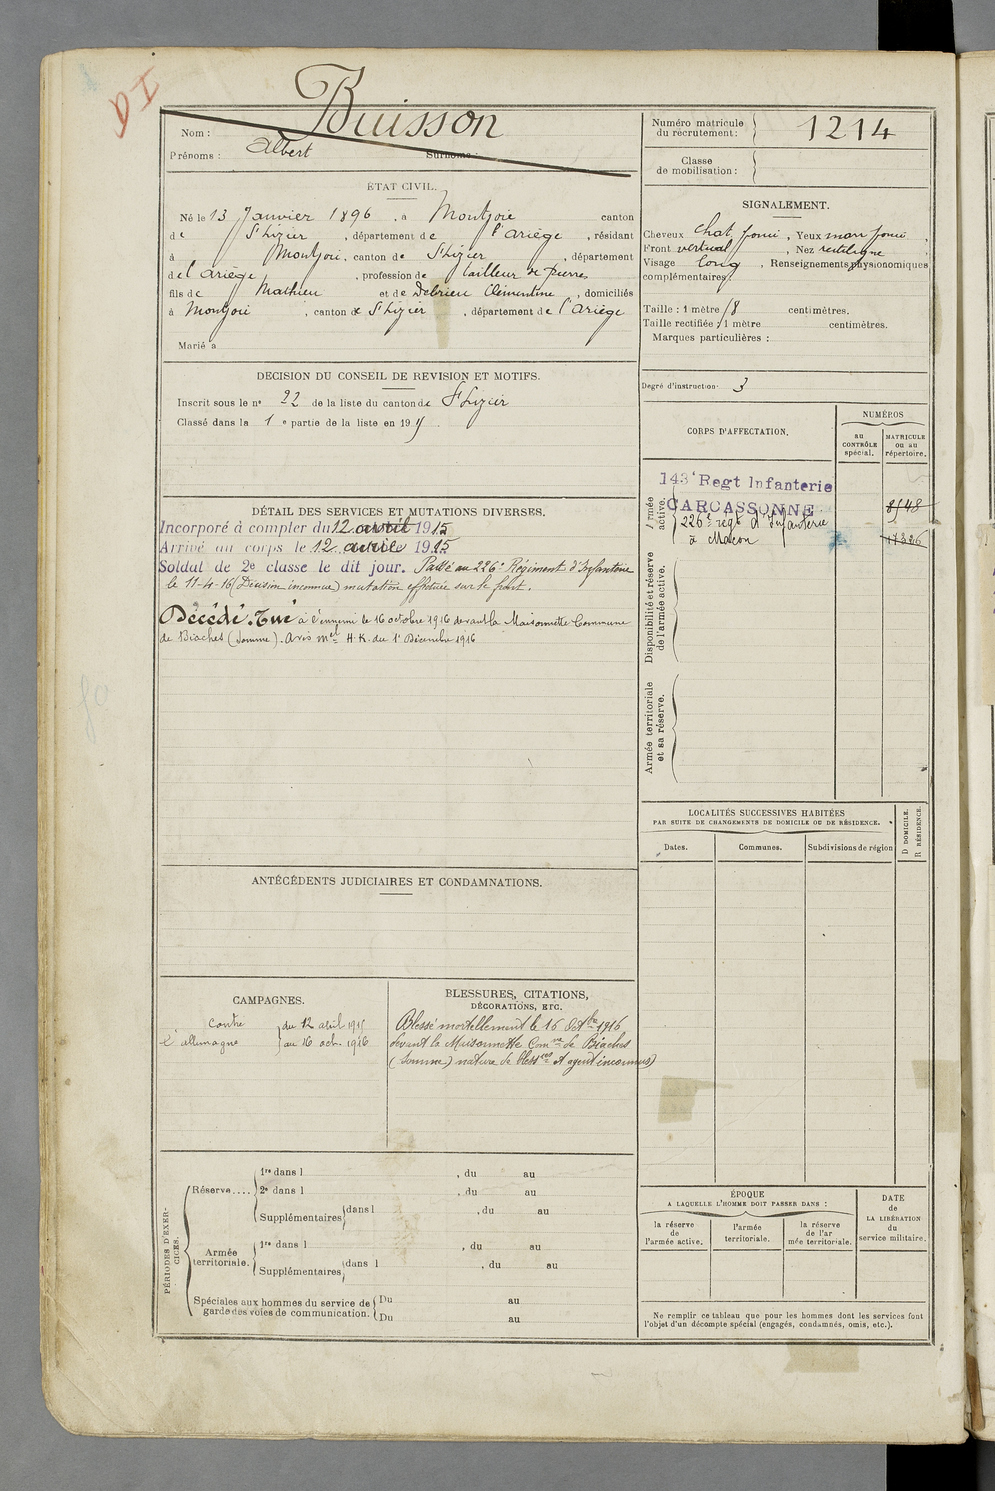 Buisson
Nom :
Prénoms : Albert Surnoms :
Numéro matricule du recrutement : 1214
Classe de mobilisation :
ÉTAT CIVIL.
Né le 13 Janvier 1896, à Montjoie canton
de St Lizier, département de l'Ariège, résidant
à Montjoie, canton de St Lizier, département
de l'Ariège, profession de tailleur de pierres
fils de Mathieu et de Debrieu Clémentine, domiciliés
à Montjoie, canton de St Lizier, département de l'Ariège
Marié à
SIGNALEMENT.
Cheveux chat foncé, Yeux marr foncé,
Front vertical, Nez rectiligne
Visage long, Renseignements physionomiques
complémentaires
Taille : 1 mètre 18 centimètres.
Taille rectifiée : 1 mètre centimètres.
Marques particulières :
Degré d'instruction. 3
DECISION DU CONSEIL DE REVISION ET MOTIFS.
Inscrit sous le n° 22 de la liste du canton de St Lizier
Classé dans la 1e partie de la liste en 19
CORPS D'AFFECTATION.
NUMÉROS
au CONTRÔLE spécial.
MATRICULE ou au répertoire.
Armée active.
143e Regt Infanterie
CARCASSONNE
226e regt d'Infanterie
à Macon
Disponibilité et réserve de l'armée active.
Armée territoriale et sa réserve.
DÉTAIL DES SERVICES ET MUTATIONS DIVERSES.
Incorporé à compter du 12 avril 1915
Arrivé au corps le 12 avril 1915
Soldat de 2e classe le dit jour. Passé au 226e Régiment d'Infanterie
le 11-4-16 (Décision inconnue) mutation effectuée sur le front.
Décédé. Tué à l'ennemi le 16 octobre 1916 devant la Maisonnette Commune
de Biaches (Somme). Avis mel H.K. du 1er Décembre 1916
LOCALITÉS SUCCESSIVES HABITÉES
PAR SUITE DE CHANGEMENTS DE DOMICILE OU DE RÉSIDENCE.
Dates.
Communes.
Subdivisions de région
D DOMICILE.
R RÉSIDENCE.
ANTÉCÉDENTS JUDICIAIRES ET CONDAMNATIONS.
CAMPAGNES.
Contre du 12 avril 1915
l'allemagne au 16 octb. 1916
BLESSURES, CITATIONS,
DÉCORATIONS, ETC.
Blessé mortellement le 16 Octbre 1916
devant la Maisonnette Comne de Biaches
(Somme) nature de blessres et agent inconnus)
PÉRIODES D'EXERCICES.
Réserve....
1re dans l , du au
2e dans l , du au
Supplémentaires dans l , du au
Armée territoriale.
1re dans l , du au
Supplémentaires dans l , du au
Spéciales aux hommes du service de garde des voies de communication.
Du au
Du au
ÉPOQUE
A LAQUELLE L'HOMME DOIT PASSER DANS :
la réserve de l'armée active.
l'armée territoriale.
la réserve de l'armée territoriale.
DATE de LA LIBÉRATION du service militaire.
Ne remplir ce tableau que pour les hommes dont les services font
l'objet d'un décompte spécial (engagés, condamnés, omis, etc.).